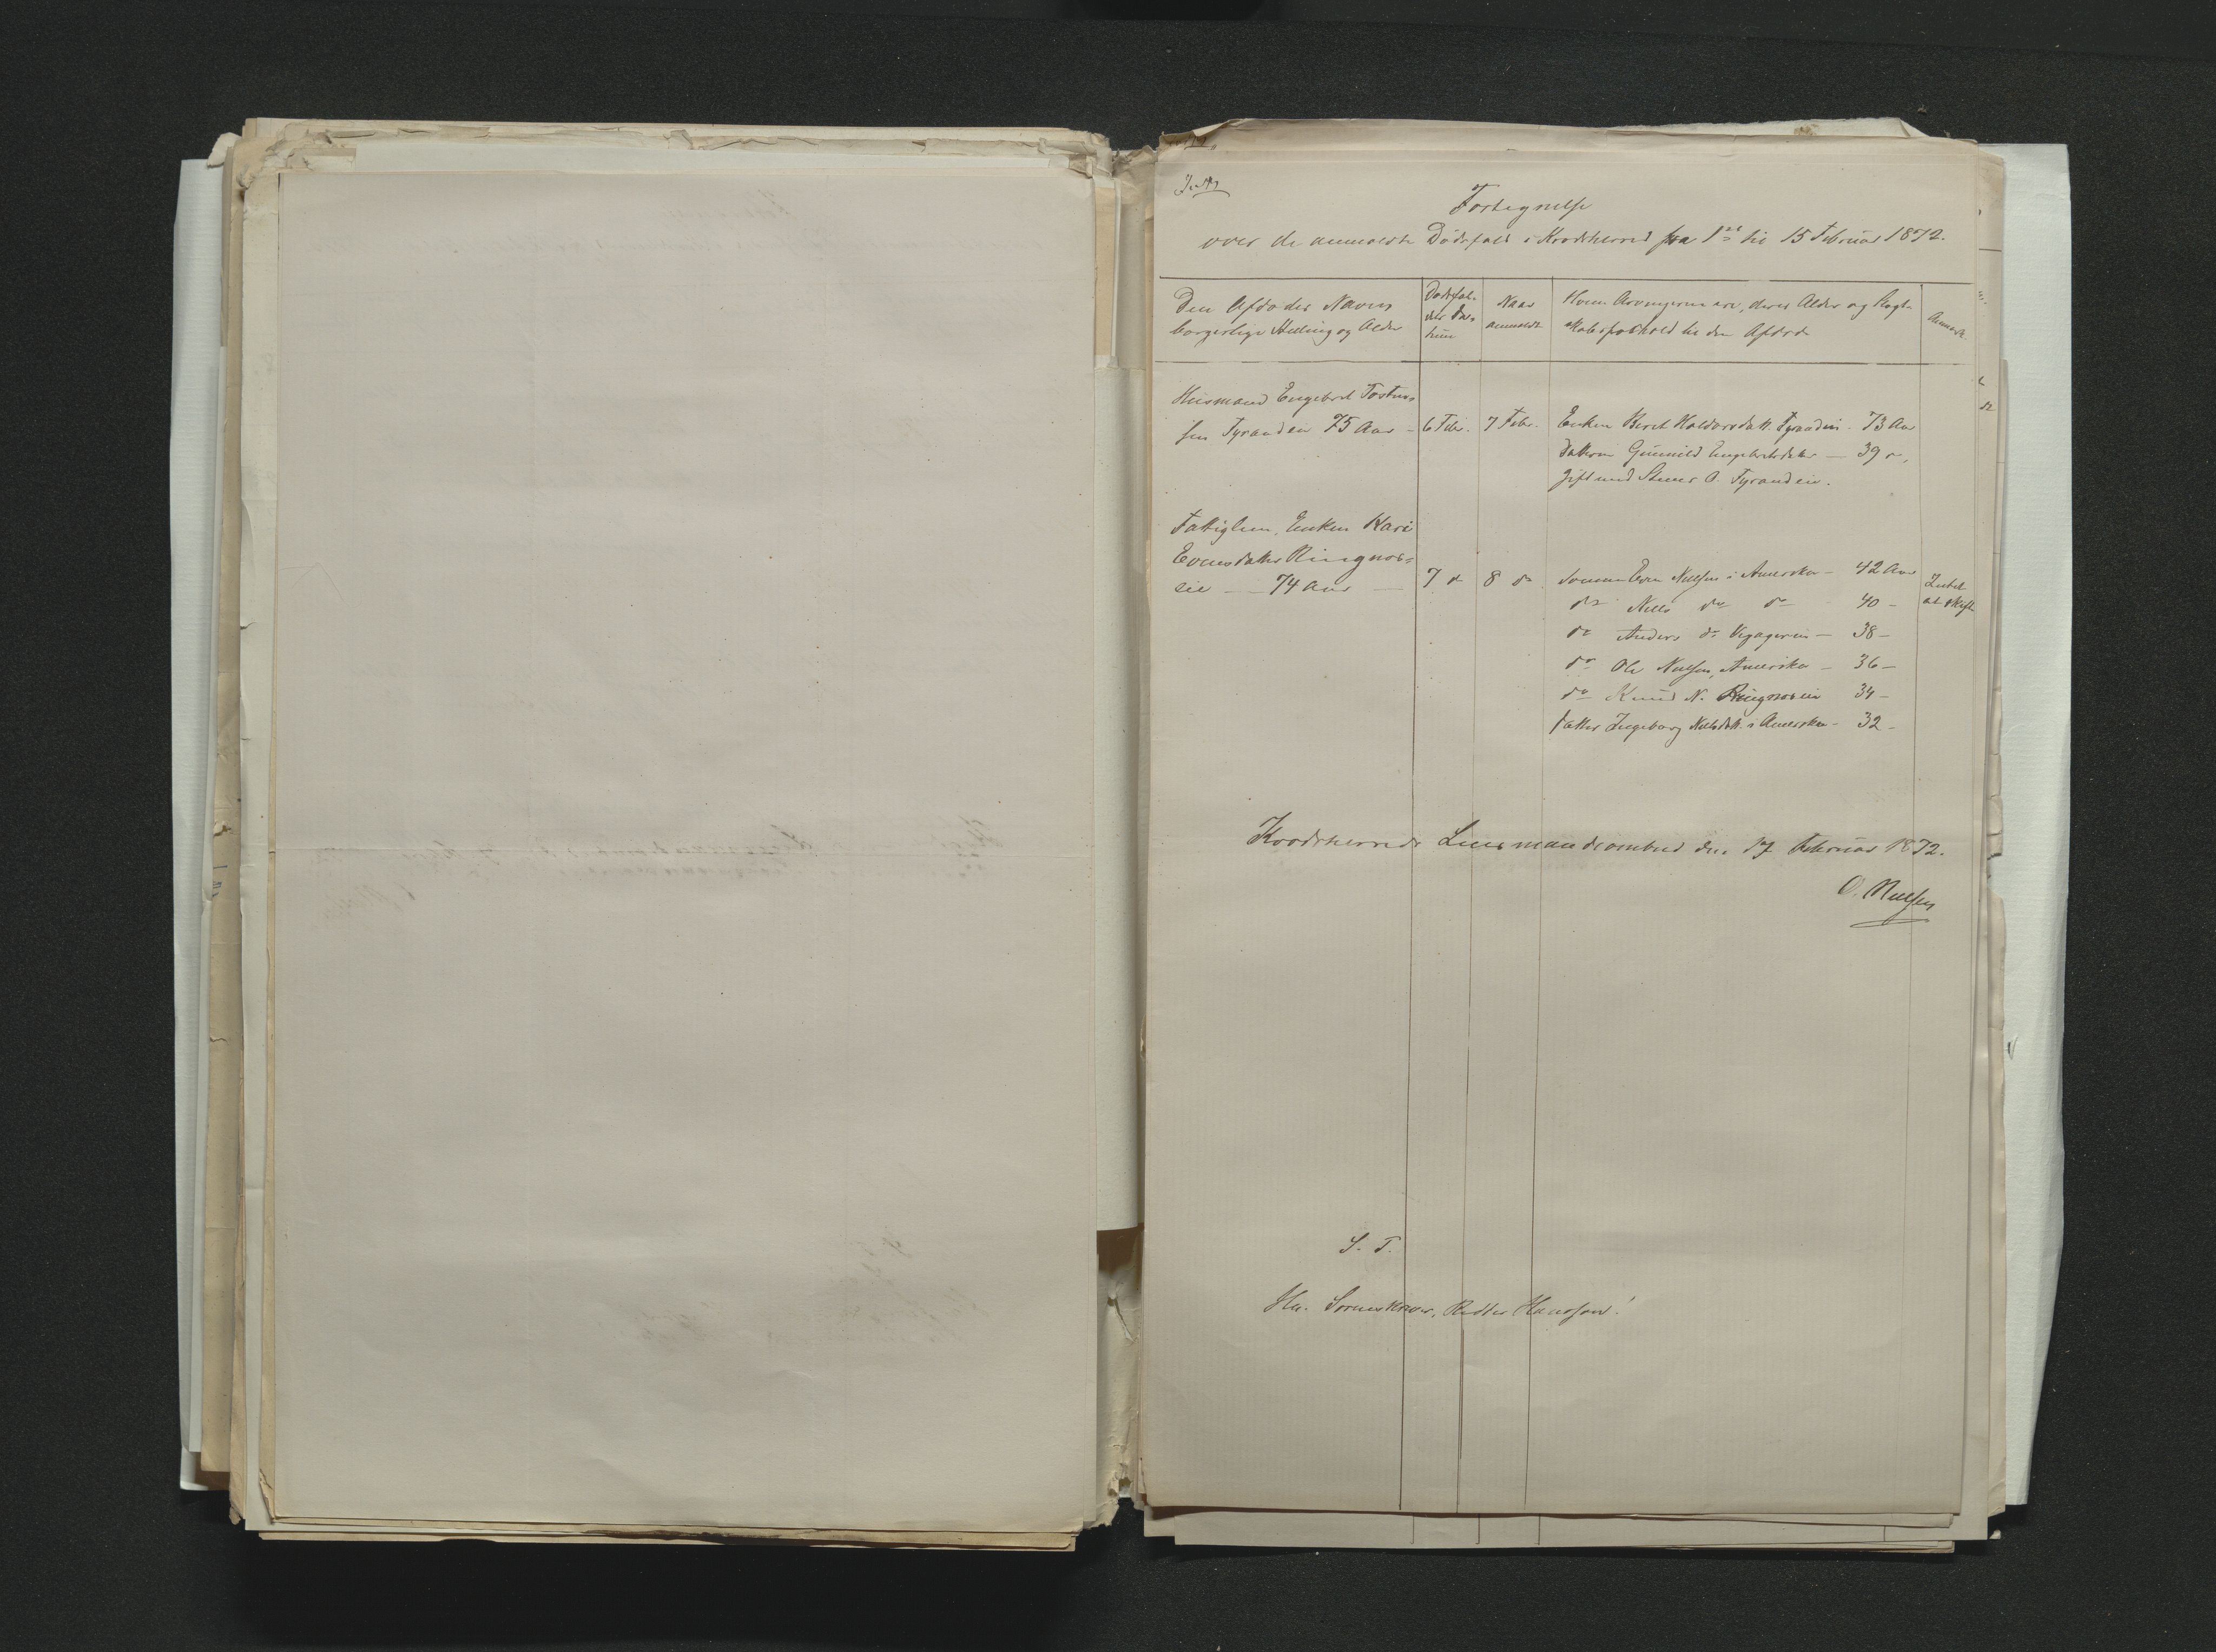 Fortegnelse
over de anmeldte Dødsfald i Krødsherred fra 1ste til 15 Februar 1872.
Den Afdødes Navn
borgerlige Stilling og Alder
Dødsfal-
dets Da-
tum
Naar
anmeldt
Hvem Arvingerne ere, deres Alder og Slægt-
skabsforhold til den Afdøde
Anmærk.
Huusmand Engebret Torstens-
sen Tyrandeie 75 Aar - 6 Febr. 7 Febr. Enken Berit Haldorsdatt. Tyrandeie - 73 Aar
Datteren Gunnild Engebretsdatter — 39 "
gift med Steener O. Tyrandeie.
Fattiglem, Enken Kari
Evensdatter Ringnes=
eie — 74 Aar — 7 do 8 do Sønnen Even Nielsen i Amerika - 42 Aar Intet
at skifte
do Niels do do 40 -
do Anders do — 38 -
do Ole Nielsen, Amerika — 36 -
do Knud N. Ringneseie 34 -
datter Ingeborg Nielsdatt. i Amerika - 32 -
Krødsherreds Lensmandsombud den 17 Februar 1872.
O. Nielsen
S. T.
Hr. Sorenskriver, Ridder Hansson!